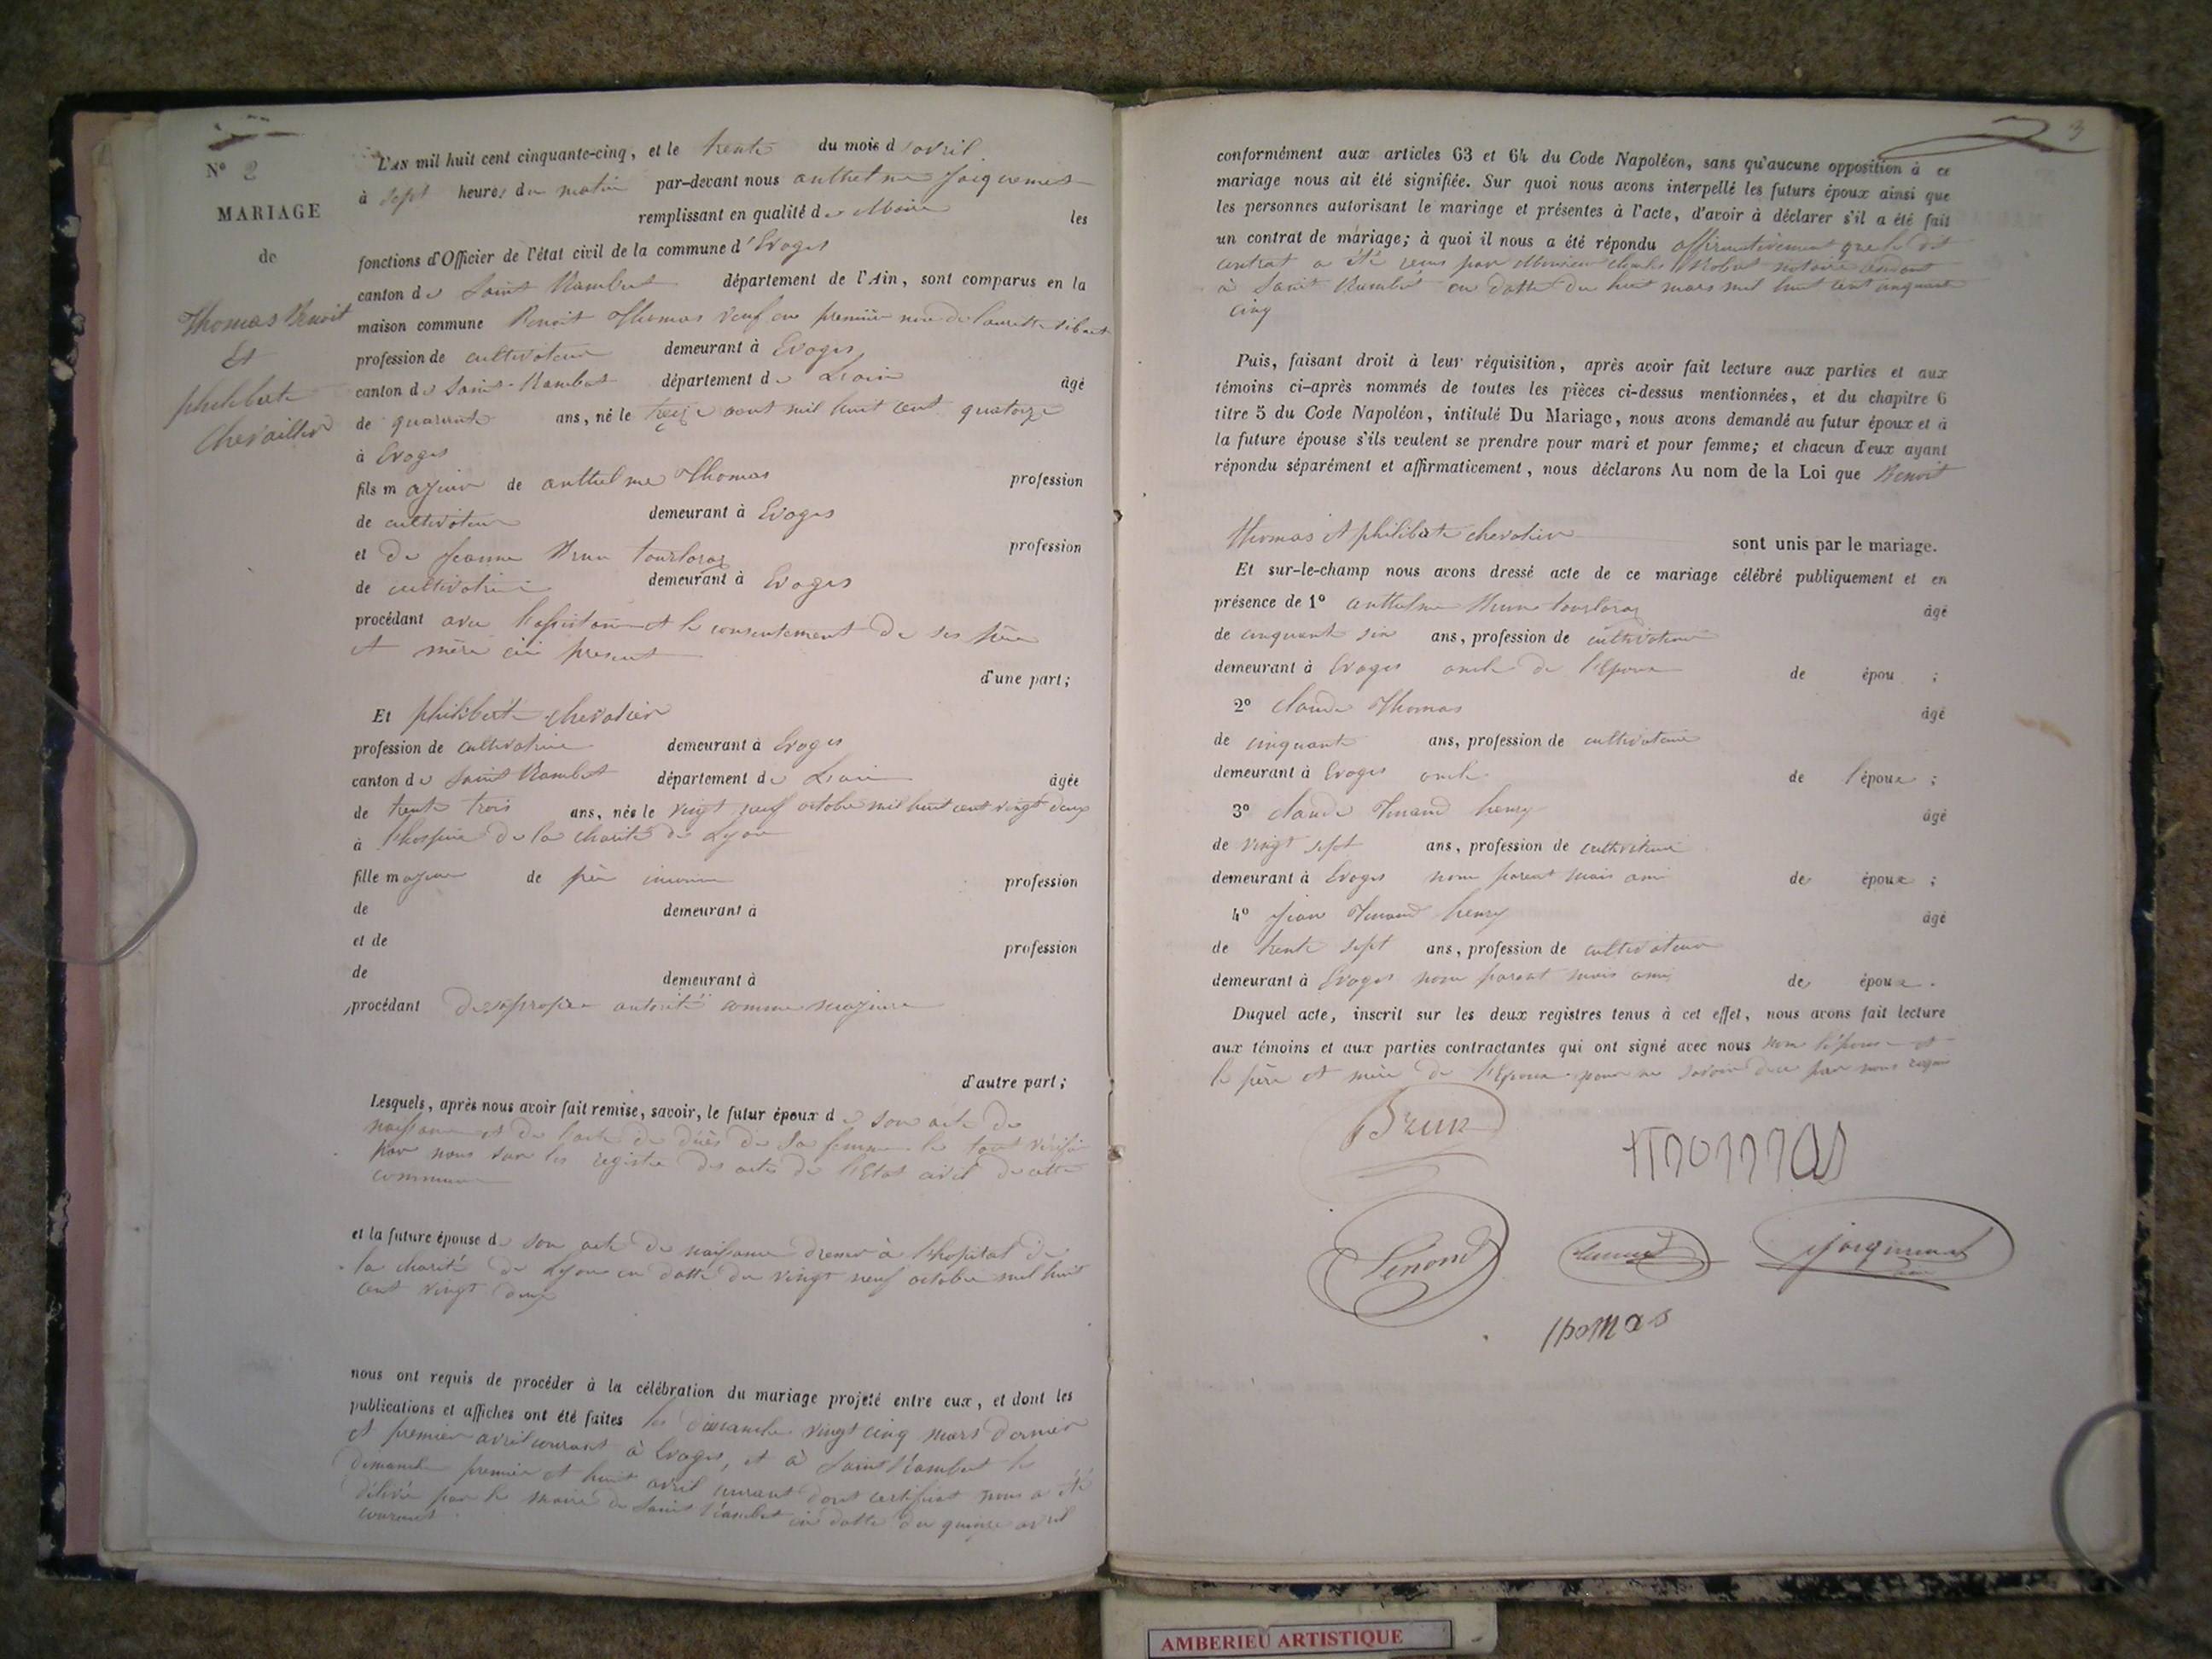 N° 2
MARIAGE
de
Thomas Benoit
Et
philiberte
Chevallier
L'AN mil huit cent cinquante-cinq, et le trente du mois d'avril
à sept heures du matin par-devant nous anthelme Jacquemet
remplissant en qualité de Maire les
fonctions d'Officier de l'état civil de la commune d'Evoges
canton de Saint Rambert département de l'Ain, sont comparus en la
maison commune Benoit Thomas veuf en première
profession de cultivateur demeurant à Evoges
canton de Saint-Rambert département de Lain âgé
de quarante ans, né le treize aout mil huit cent quatorze
à Evoges
fils majeur de anthelme Thomas profession
de cultivateur demeurant à Evoges
et de Jeanne Brun tourloras profession
de cultivatrice demeurant à Evoges
procédant avec l'assistance et le consentement de ses père
et mère ici present
d'une part;
Et philiberte chevalier
profession de cultivatrice demeurant à Evoges
canton de Saint Rambert département de Lain âgée
de trente trois ans, née le vingt neuf octobre mil huit cent vingt deux
à l'hospice de la charité de Lyon
fille majeure de père inconnu profession
de demeurant à
et de profession
de demeurant à
procédant de sa propre autorité comme majeure
d'autre part;
Lesquels, après nous avoir fait remise, savoir, le futur époux de son acte de
naissance et de l'acte de décès de sa femme le tout vérifié
par nous sur les registre des actes de l'Etat civil de cette
commune
et la future épouse de son acte de naissance dressé à l'hopital de
la charité de Lyon en datte du vingt neuf octobre mil huit
cent vingt deux
nous ont requis de procéder à la célébration du mariage projeté entre eux, et dont les
publications et affiches ont été faites les dimanche vingt cinq mars dernier
et premier avril courant à Evoges, et à Saint Rambert les
dimanche premier et huit avril courant dont certificat nous a été
délivré par le maire de Saint Rambert en datte du quinze avril
courant
3
conformément aux articles 63 et 64 du Code Napoléon, sans qu'aucune opposition à ce
mariage nous ait été signifiée. Sur quoi nous avons interpellé les futurs époux ainsi que
les personnes autorisant le mariage et présentes à l'acte, d'avoir à déclarer s'il a été fait
un contrat de mariage; à quoi il nous a été répondu affirmativement que le dit
contrat a été reçu par Monsieur notaire
à Saint Rambert en datte du huit mars mil huit cent cinquante
cinq
Puis, faisant droit à leur réquisition, après avoir fait lecture aux parties et aux
témoins ci-après nommés de toutes les pièces ci-dessus mentionnées, et du chapitre 6
titre 5 du Code Napoléon, intitulé Du Mariage, nous avons demandé au futur époux et à
la future épouse s'ils veulent se prendre pour mari et pour femme; et chacun d'eux ayant
répondu séparément et affirmativement, nous déclarons Au nom de la Loi que Benoit
Thomas et philiberte chevalier sont unis par le mariage.
Et sur-le-champ nous avons dressé acte de ce mariage célébré publiquement et en
présence de 1° anthelme Brun tourloras âgé
de cinquante six ans, profession de cultivateur
demeurant à Evoges oncle de l'Epoux de épou ;
2° claude Thomas âgé
de cinquante ans, profession de cultivateur
demeurant à Evoges oncle de l'époux ;
3° claude henry âgé
de vingt sept ans, profession de cultivateur
demeurant à Evoges non parent mais ami des époux ;
4° Jean henry âgé
de trente sept ans, profession de cultivateur
demeurant à Evoges non parent mais ami des époux.
Duquel acte, inscrit sur les deux registres tenus à cet effet, nous avons fait lecture
aux témoins et aux parties contractantes qui ont signé avec nous non l'épouse et
le père et mère de l'Epoux pour ne savoir de ce par nous requis
Brun
Thomas
Jacquemet
Thomas
AMBERIEU ARTISTIQUE